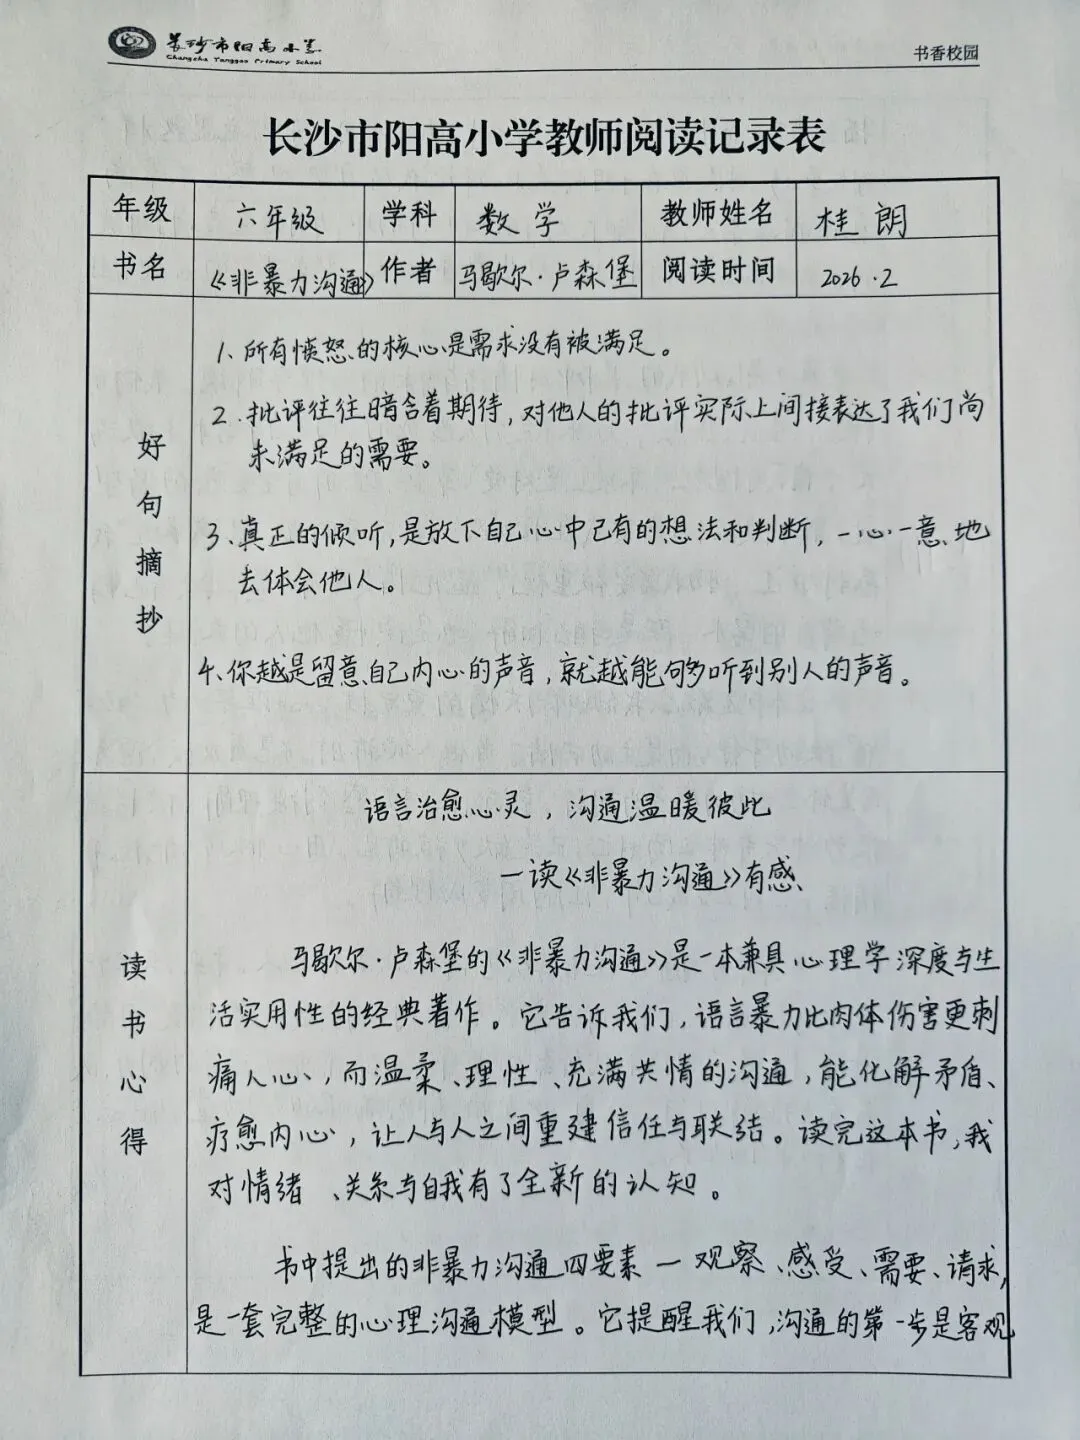 长沙市阳高小学
Changsha Yanggao Primary School
书香校园
长沙市阳高小学教师阅读记录表
年级 六年级 学科 数学 教师姓名 桂朗
书名 《非暴力沟通》 作者 马歇尔·卢森堡 阅读时间 2026.2
好句摘抄
1、所有愤怒的核心是需求没有被满足。
2、批评往往暗含着期待，对他人的批评实际上间接表达了我们尚
未满足的需要。
3、真正的倾听，是放下自己心中已有的想法和判断，一心一意地
去体会他人。
4、你越是留意自己内心的声音，就越能够听到别人的声音。
读书心得
语言治愈心灵，沟通温暖彼此
—读《非暴力沟通》有感
马歇尔·卢森堡的《非暴力沟通》是一本兼具心理学深度与生
活实用性的经典著作。它告诉我们，语言暴力比肉体伤害更刺
痛人心，而温柔、理性、充满共情的沟通，能化解矛盾、
疗愈内心，让人与人之间重建信任与联结。读完这本书，我
对情绪、关系与自我有了全新的认知。
书中提出的非暴力沟通四要素—观察、感受、需要、请求，
是一套完整的心理沟通模型。它提醒我们，沟通的第一步是客观